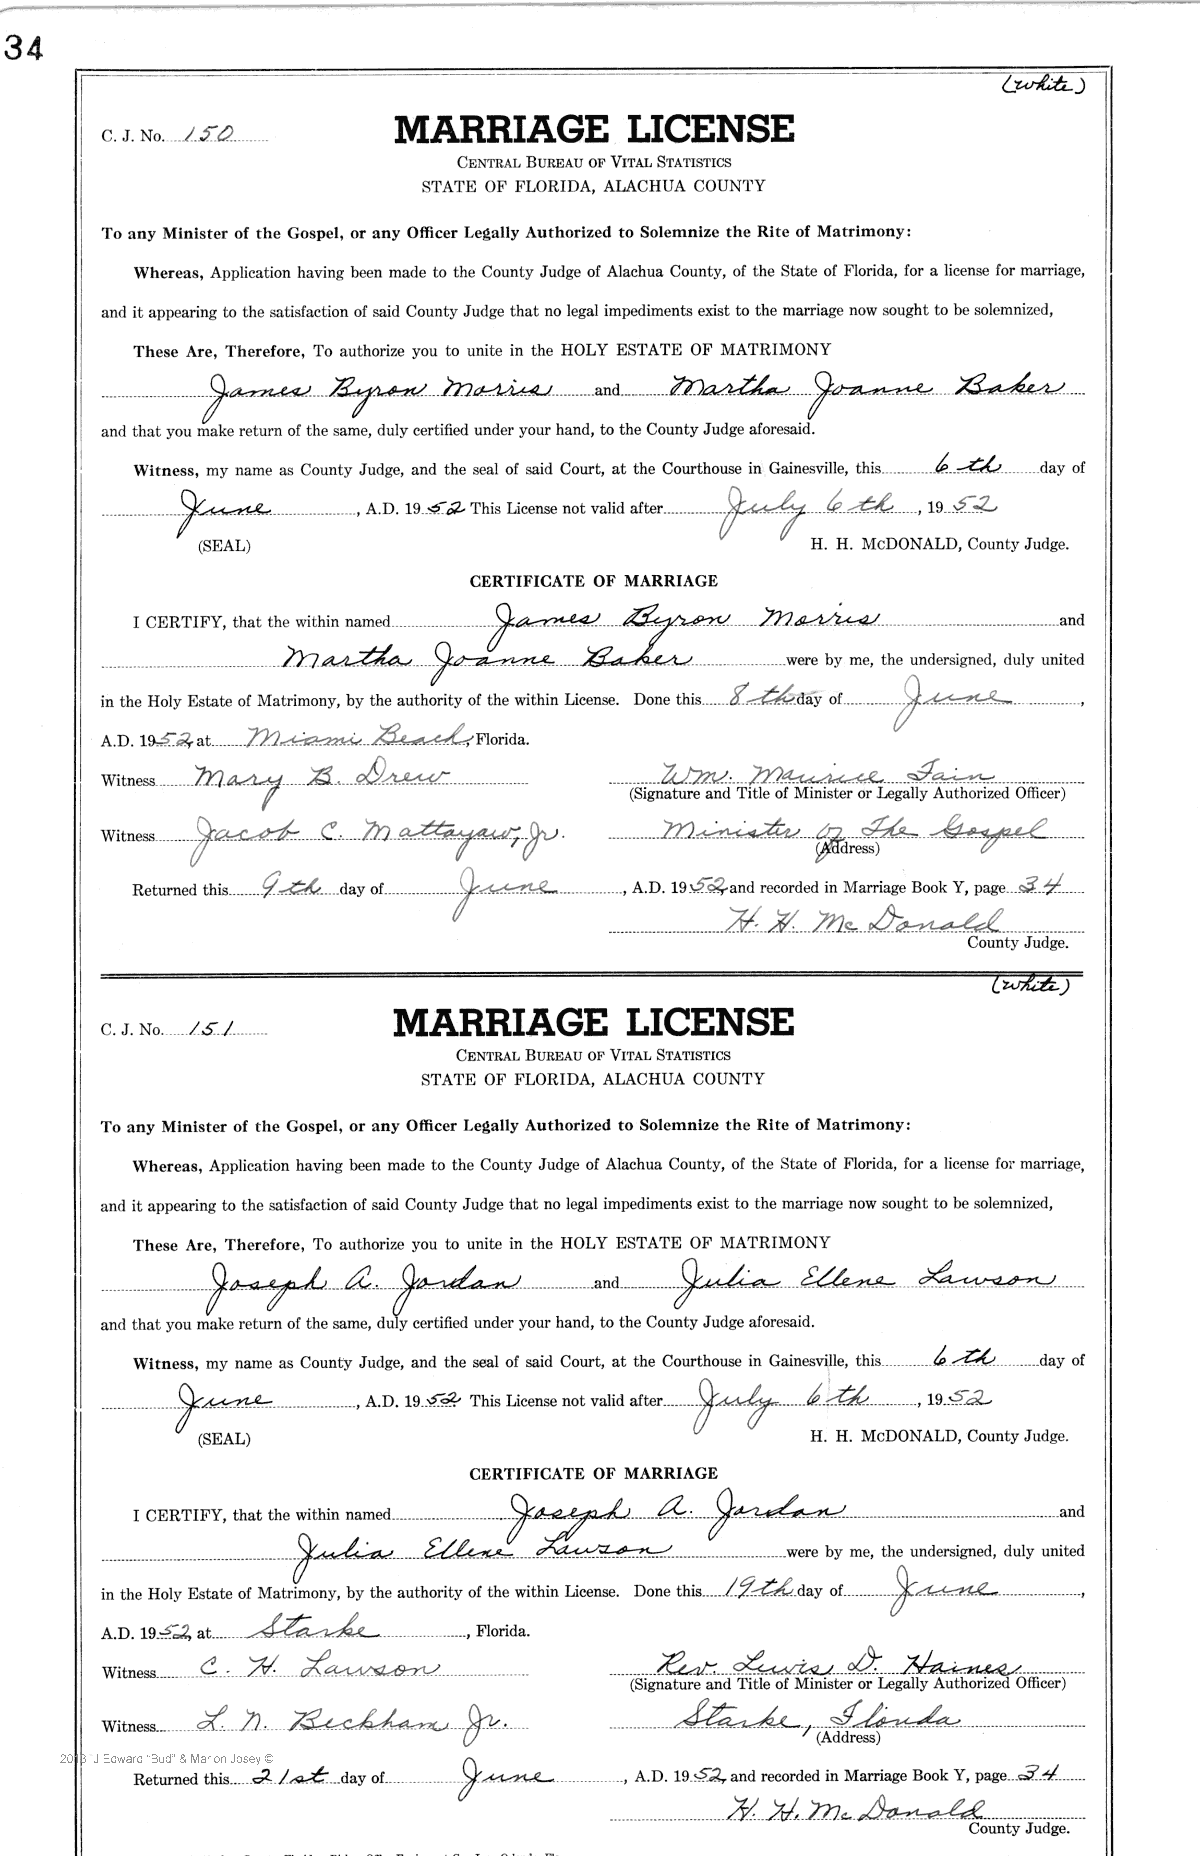 34
(White)
C. J. No. 150
MARRIAGE LICENSE
CENTRAL BUREAU OF VITAL STATISTICS
STATE OF FLORIDA, ALACHUA COUNTY
To any Minister of the Gospel, or any Officer Legally Authorized to Solemnize the Rite of Matrimony:
Whereas, Application having been made to the County Judge of Alachua County, of the State of Florida, for a license for marriage,
and it appearing to the satisfaction of said County Judge that no legal impediments exist to the marriage now sought to be solemnized,
These Are, Therefore, To authorize you to unite in the HOLY ESTATE OF MATRIMONY
James Byron Morris and Martha Joanne Baker
and that you make return of the same, duly certified under your hand, to the County Judge aforesaid.
Witness, my name as County Judge, and the seal of said Court, at the Courthouse in Gainesville, this 6th day of
June, A.D. 1952 This License not valid after July 6th, 1952
(SEAL) H. H. McDONALD, County Judge.
CERTIFICATE OF MARRIAGE
I CERTIFY, that the within named James Byron Morris and
Martha Joanne Baker were by me, the undersigned, duly united
in the Holy Estate of Matrimony, by the authority of the within License. Done this 8th day of June,
A.D. 1952, at Miami Beach, Florida.
Witness Mary B. Drew Wm. Maurice Fain
(Signature and Title of Minister or Legally Authorized Officer)
Witness Jacob C. Mattayaw, Jr. Minister of The Gospel
(Address)
Returned this 9th day of June, A.D. 1952, and recorded in Marriage Book Y, page 34
H. H. McDonald
County Judge.
(White)
C. J. No. 151
MARRIAGE LICENSE
CENTRAL BUREAU OF VITAL STATISTICS
STATE OF FLORIDA, ALACHUA COUNTY
To any Minister of the Gospel, or any Officer Legally Authorized to Solemnize the Rite of Matrimony:
Whereas, Application having been made to the County Judge of Alachua County, of the State of Florida, for a license for marriage,
and it appearing to the satisfaction of said County Judge that no legal impediments exist to the marriage now sought to be solemnized,
These Are, Therefore, To authorize you to unite in the HOLY ESTATE OF MATRIMONY
Joseph A. Jordan and Julia Ellene Lawson
and that you make return of the same, duly certified under your hand, to the County Judge aforesaid.
Witness, my name as County Judge, and the seal of said Court, at the Courthouse in Gainesville, this 6th day of
June, A.D. 1952 This License not valid after July 6th, 1952
(SEAL) H. H. McDONALD, County Judge.
CERTIFICATE OF MARRIAGE
I CERTIFY, that the within named Joseph A. Jordan and
Julia Ellene Lawson were by me, the undersigned, duly united
in the Holy Estate of Matrimony, by the authority of the within License. Done this 19th day of June,
A.D. 1952, at Starke, Florida.
Witness C. H. Lawson Rev. Lewis D. Haines
(Signature and Title of Minister or Legally Authorized Officer)
Witness L. N. Beckham Jr. Starke, Florida
(Address)
J Edward "Bud" & Marion Josey ©
Returned this 21st day of June, A.D. 1952, and recorded in Marriage Book Y, page 34
H. H. McDonald
County Judge.